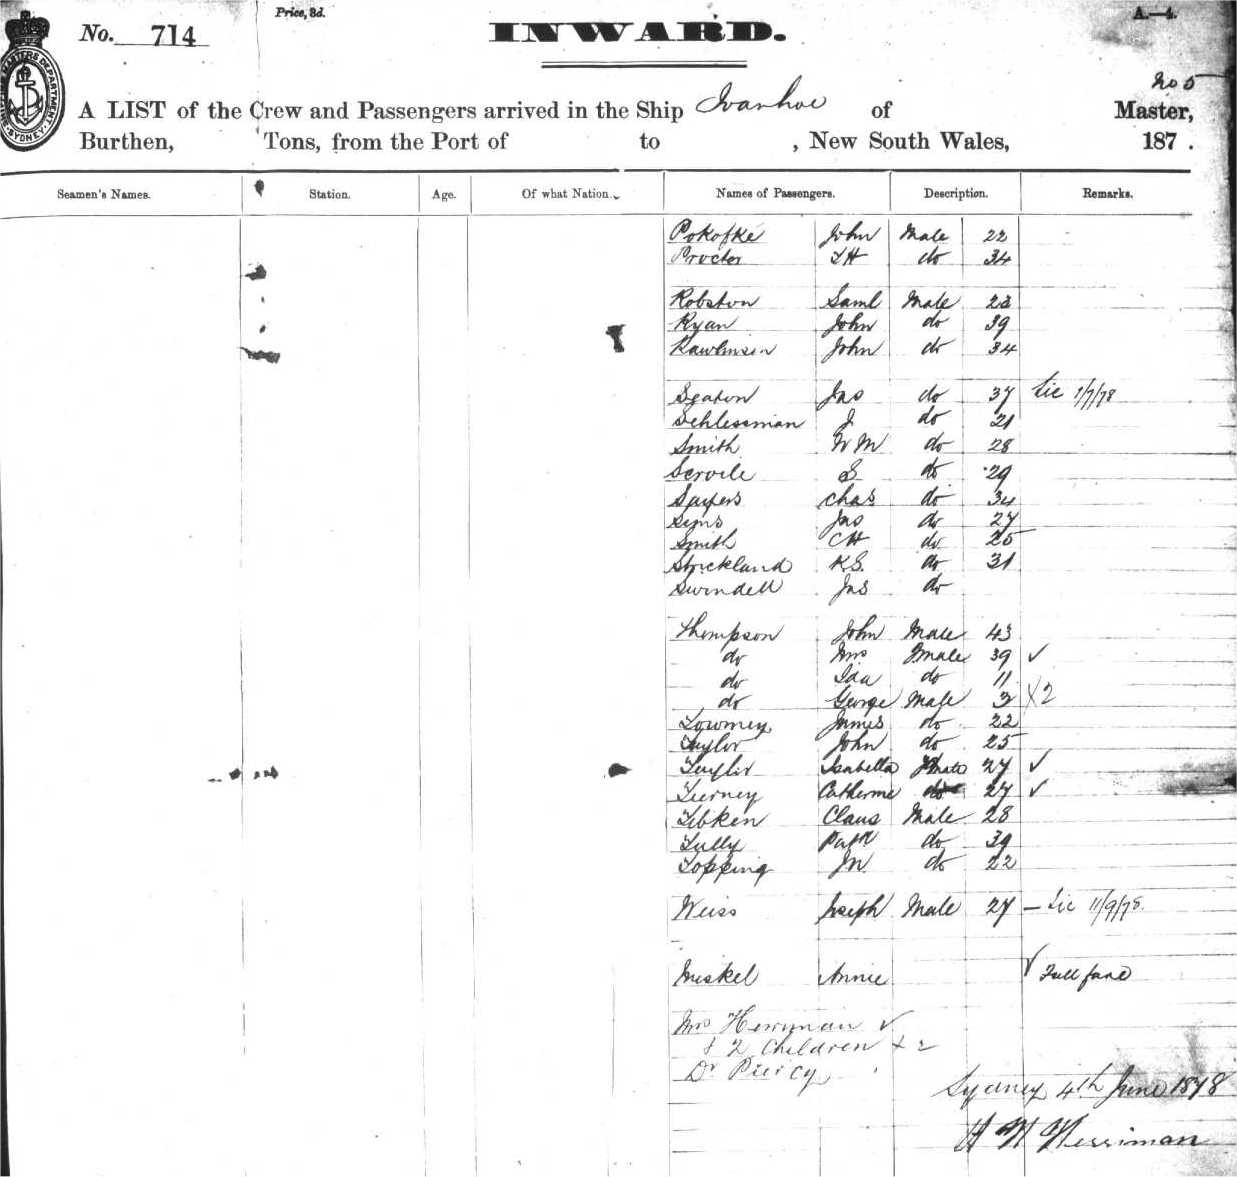 Price, 3d.
A.—4.
No. 714
INWARD.
No 5
A LIST of the Crew and Passengers arrived in the Ship Ivanhoe of Master,
Burthen, Tons, from the Port of to , New South Wales, 187 .
Seamen's Names. Station. Age. Of what Nation. Names of Passengers. Description. Remarks.
Pokofke John Male 22
Procter T H do 34
Robston Saml Male 23
Ryan John do 39
Rawlinson John do 34
Seaton Jas do 37 Lic 1/7/78
Schlessman J do 21
Smith W M do 28
S do 29
Chas do 34
Sims Jas do 27
Smith C H do 25
Strickland K.S. do 31
Swindell Jas do
Thompson John Male 43
do Mrs Fmale 39 ✓
do Ida do 11
do George Male 3 X2
Towmey James do 22
Taylor John do 25
Taylor Isabella Fmale 27 ✓
Tierney Catherine do 27 ✓
Tibken Claus Male 28
Tully Patk do 39
Topping Jn. do 22
Weiss Joseph Male 27 – Lic 11/9/78.
Miskel Annie ✓ Full fare
Mrs Herriman ✓
& 2 Children X 2
Dr Piercy
Sydney 4th June 1878
H W Merriman